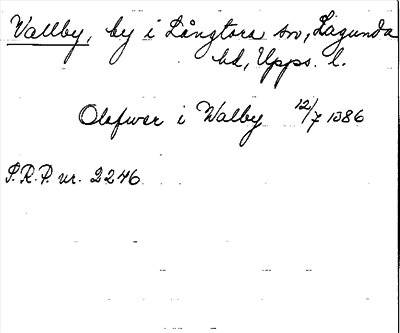 Vallby, by i Långtora sn, Lagunda
hd, Upps. l.
Olafwer i Walby 12/7 1386
S.R.P. nr. 2246